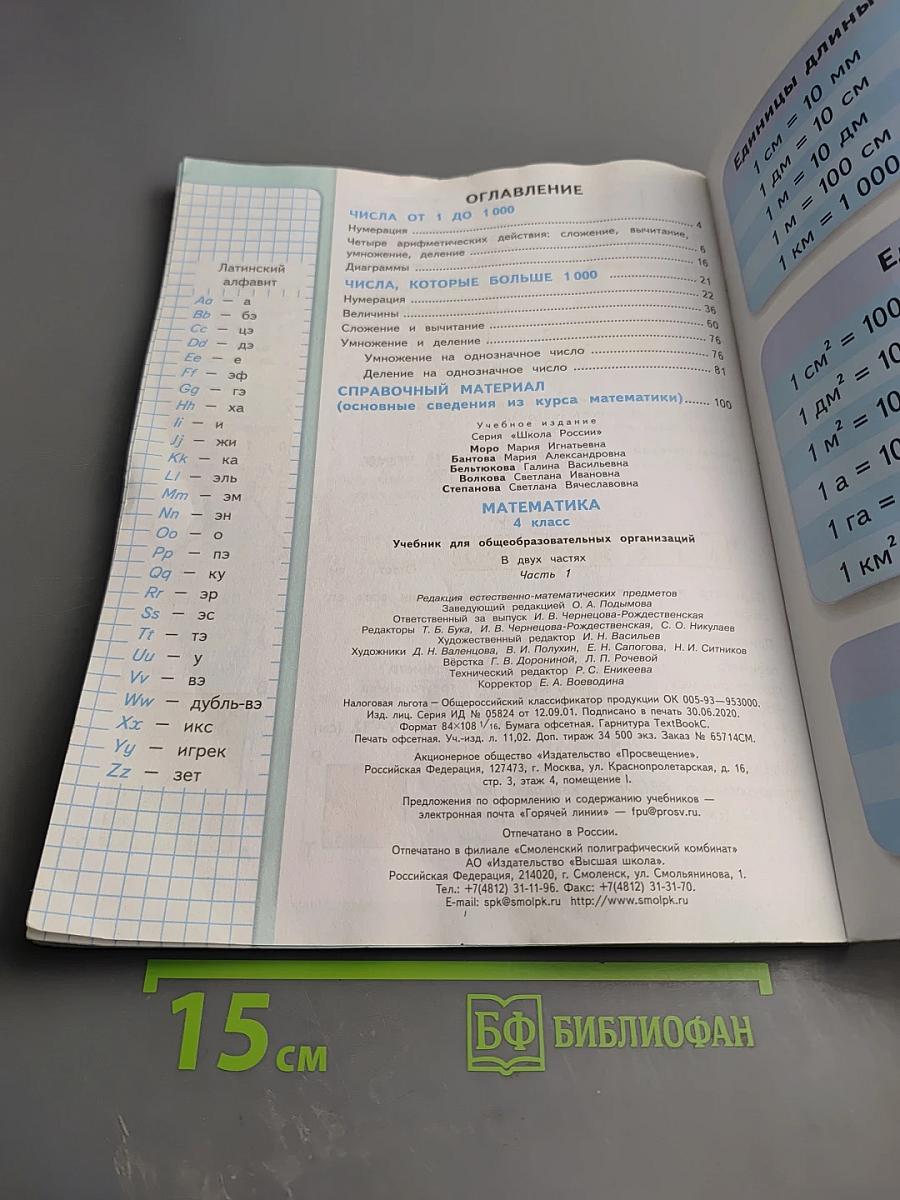 Латинский
алфавит
Aa — а
Bb — бэ
Cc — цэ
Dd — дэ
Ee — е
Ff — эф
Gg — гэ
Hh — ха
Ii — и
Jj — жи
Kk — ка
Ll — эль
Mm — эм
Nn — эн
Oo — о
Pp — пэ
Qq — ку
Rr — эр
Ss — эс
Tt — тэ
Uu — у
Vv — вэ
Ww — дубль-вэ
Xx — икс
Yy — игрек
Zz — зет
ОГЛАВЛЕНИЕ
ЧИСЛА ОТ 1 ДО 1 000
Нумерация 4
Четыре арифметических действия: сложение, вычитание,
умножение, деление 6
Диаграммы 16
ЧИСЛА, КОТОРЫЕ БОЛЬШЕ 1 000 21
Нумерация 22
Величины 36
Сложение и вычитание 60
Умножение и деление 76
Умножение на однозначное число 76
Деление на однозначное число 81
СПРАВОЧНЫЙ МАТЕРИАЛ
(основные сведения из курса математики) 100
Учебное издание
Серия «Школа России»
Моро Мария Игнатьевна
Бантова Мария Александровна
Бельтюкова Галина Васильевна
Волкова Светлана Ивановна
Степанова Светлана Вячеславовна
МАТЕМАТИКА
4 класс
Учебник для общеобразовательных организаций
В двух частях
Часть 1
Редакция естественно-математических предметов
Заведующий редакцией О. А. Подымова
Ответственный за выпуск И. В. Чернецова-Рождественская
Редакторы Т. Б. Бука, И. В. Чернецова-Рождественская, С. О. Никулаев
Художественный редактор И. Н. Васильев
Художники Д. Н. Валенцова, В. И. Полухин, Е. Н. Сапогова, Н. И. Ситников
Вёрстка Г. В. Дорониной, Л. П. Рочевой
Технический редактор Р. С. Еникеева
Корректор Е. А. Воеводина
Налоговая льгота — Общероссийский классификатор продукции ОК 005-93—953000.
Изд. лиц. Серия ИД № 05824 от 12.09.01. Подписано в печать 30.06.2020.
Формат 84×108 1/16. Бумага офсетная. Гарнитура TextBookC.
Печать офсетная. Уч.-изд. л. 11,02. Доп. тираж 34 500 экз. Заказ № 65714СМ.
Акционерное общество «Издательство «Просвещение».
Российская Федерация, 127473, г. Москва, ул. Краснопролетарская, д. 16,
стр. 3, этаж 4, помещение I.
Предложения по оформлению и содержанию учебников —
электронная почта «Горячей линии» — fpu@prosv.ru.
Отпечатано в России.
Отпечатано в филиале «Смоленский полиграфический комбинат»
АО «Издательство «Высшая школа».
Российская Федерация, 214020, г. Смоленск, ул. Смольянинова, 1.
Тел.: +7(4812) 31-11-96. Факс: +7(4812) 31-31-70.
E-mail: spk@smolpk.ru http://www.smolpk.ru
Единицы длины
1 см = 10 мм
1 дм = 10 см
1 м = 10 дм
1 м = 100 см
1 км = 1 000
1 см² = 100
1 дм² = 10
1 м² = 10
1 а = 10
1 га =
1 км²
15 см
БФ БИБЛИОФАН